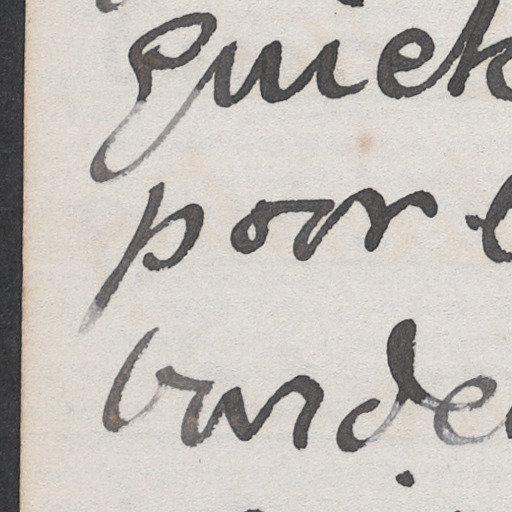 quick
poor
burde